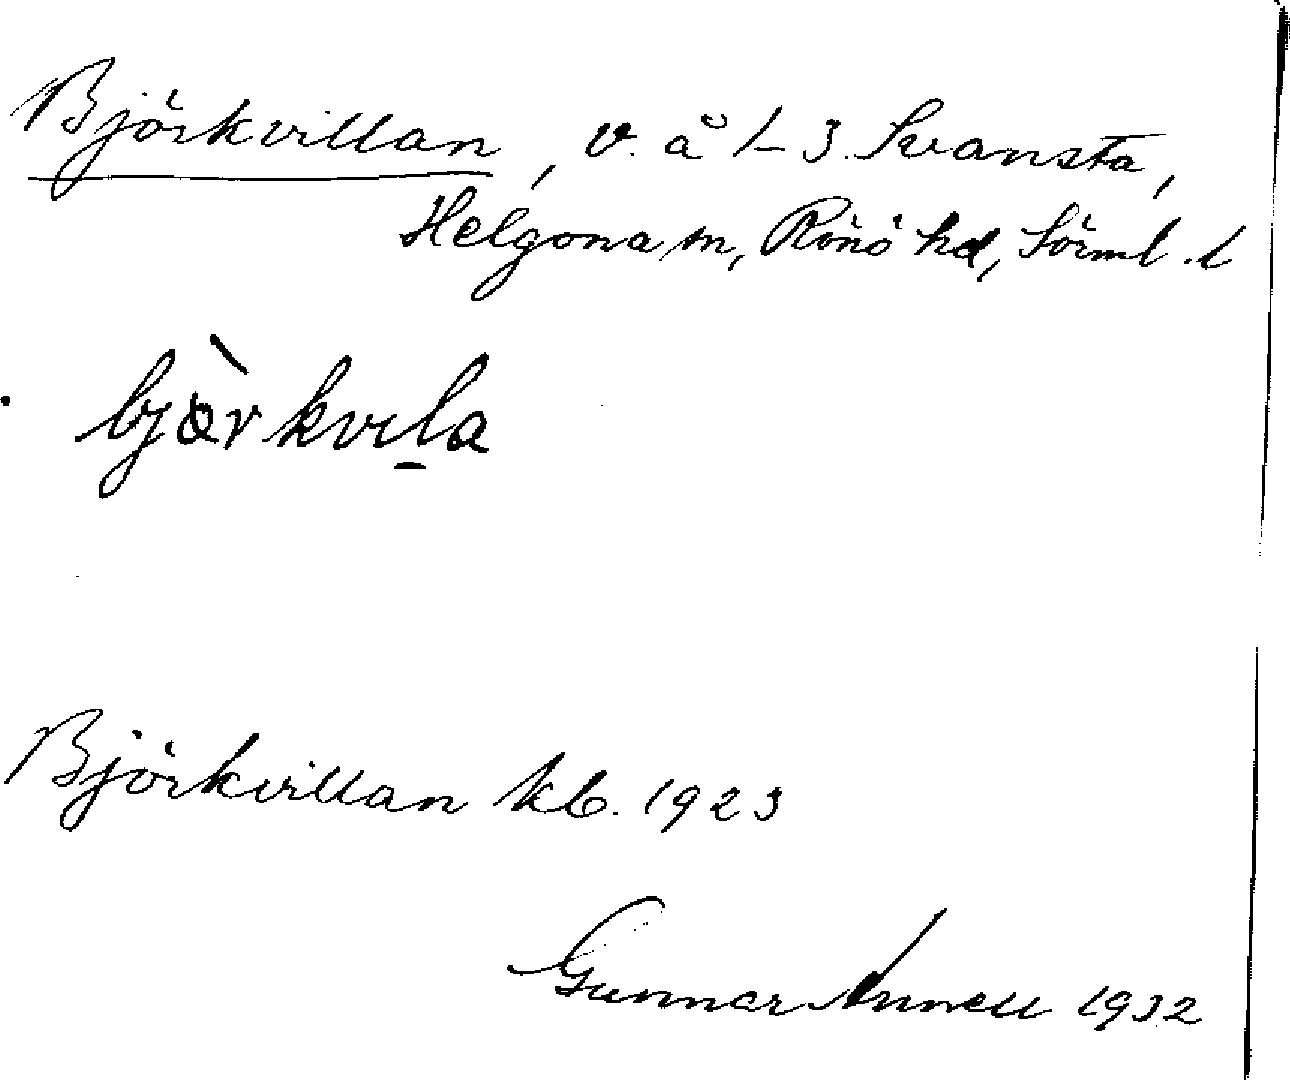 Björkvillan, v. å 1-3 Svansta,
Helgona sn, Rönö hd, Sörml. l
bjö̀rkvila
Björkvillan kb. 1923
Gunnar Annell 1932